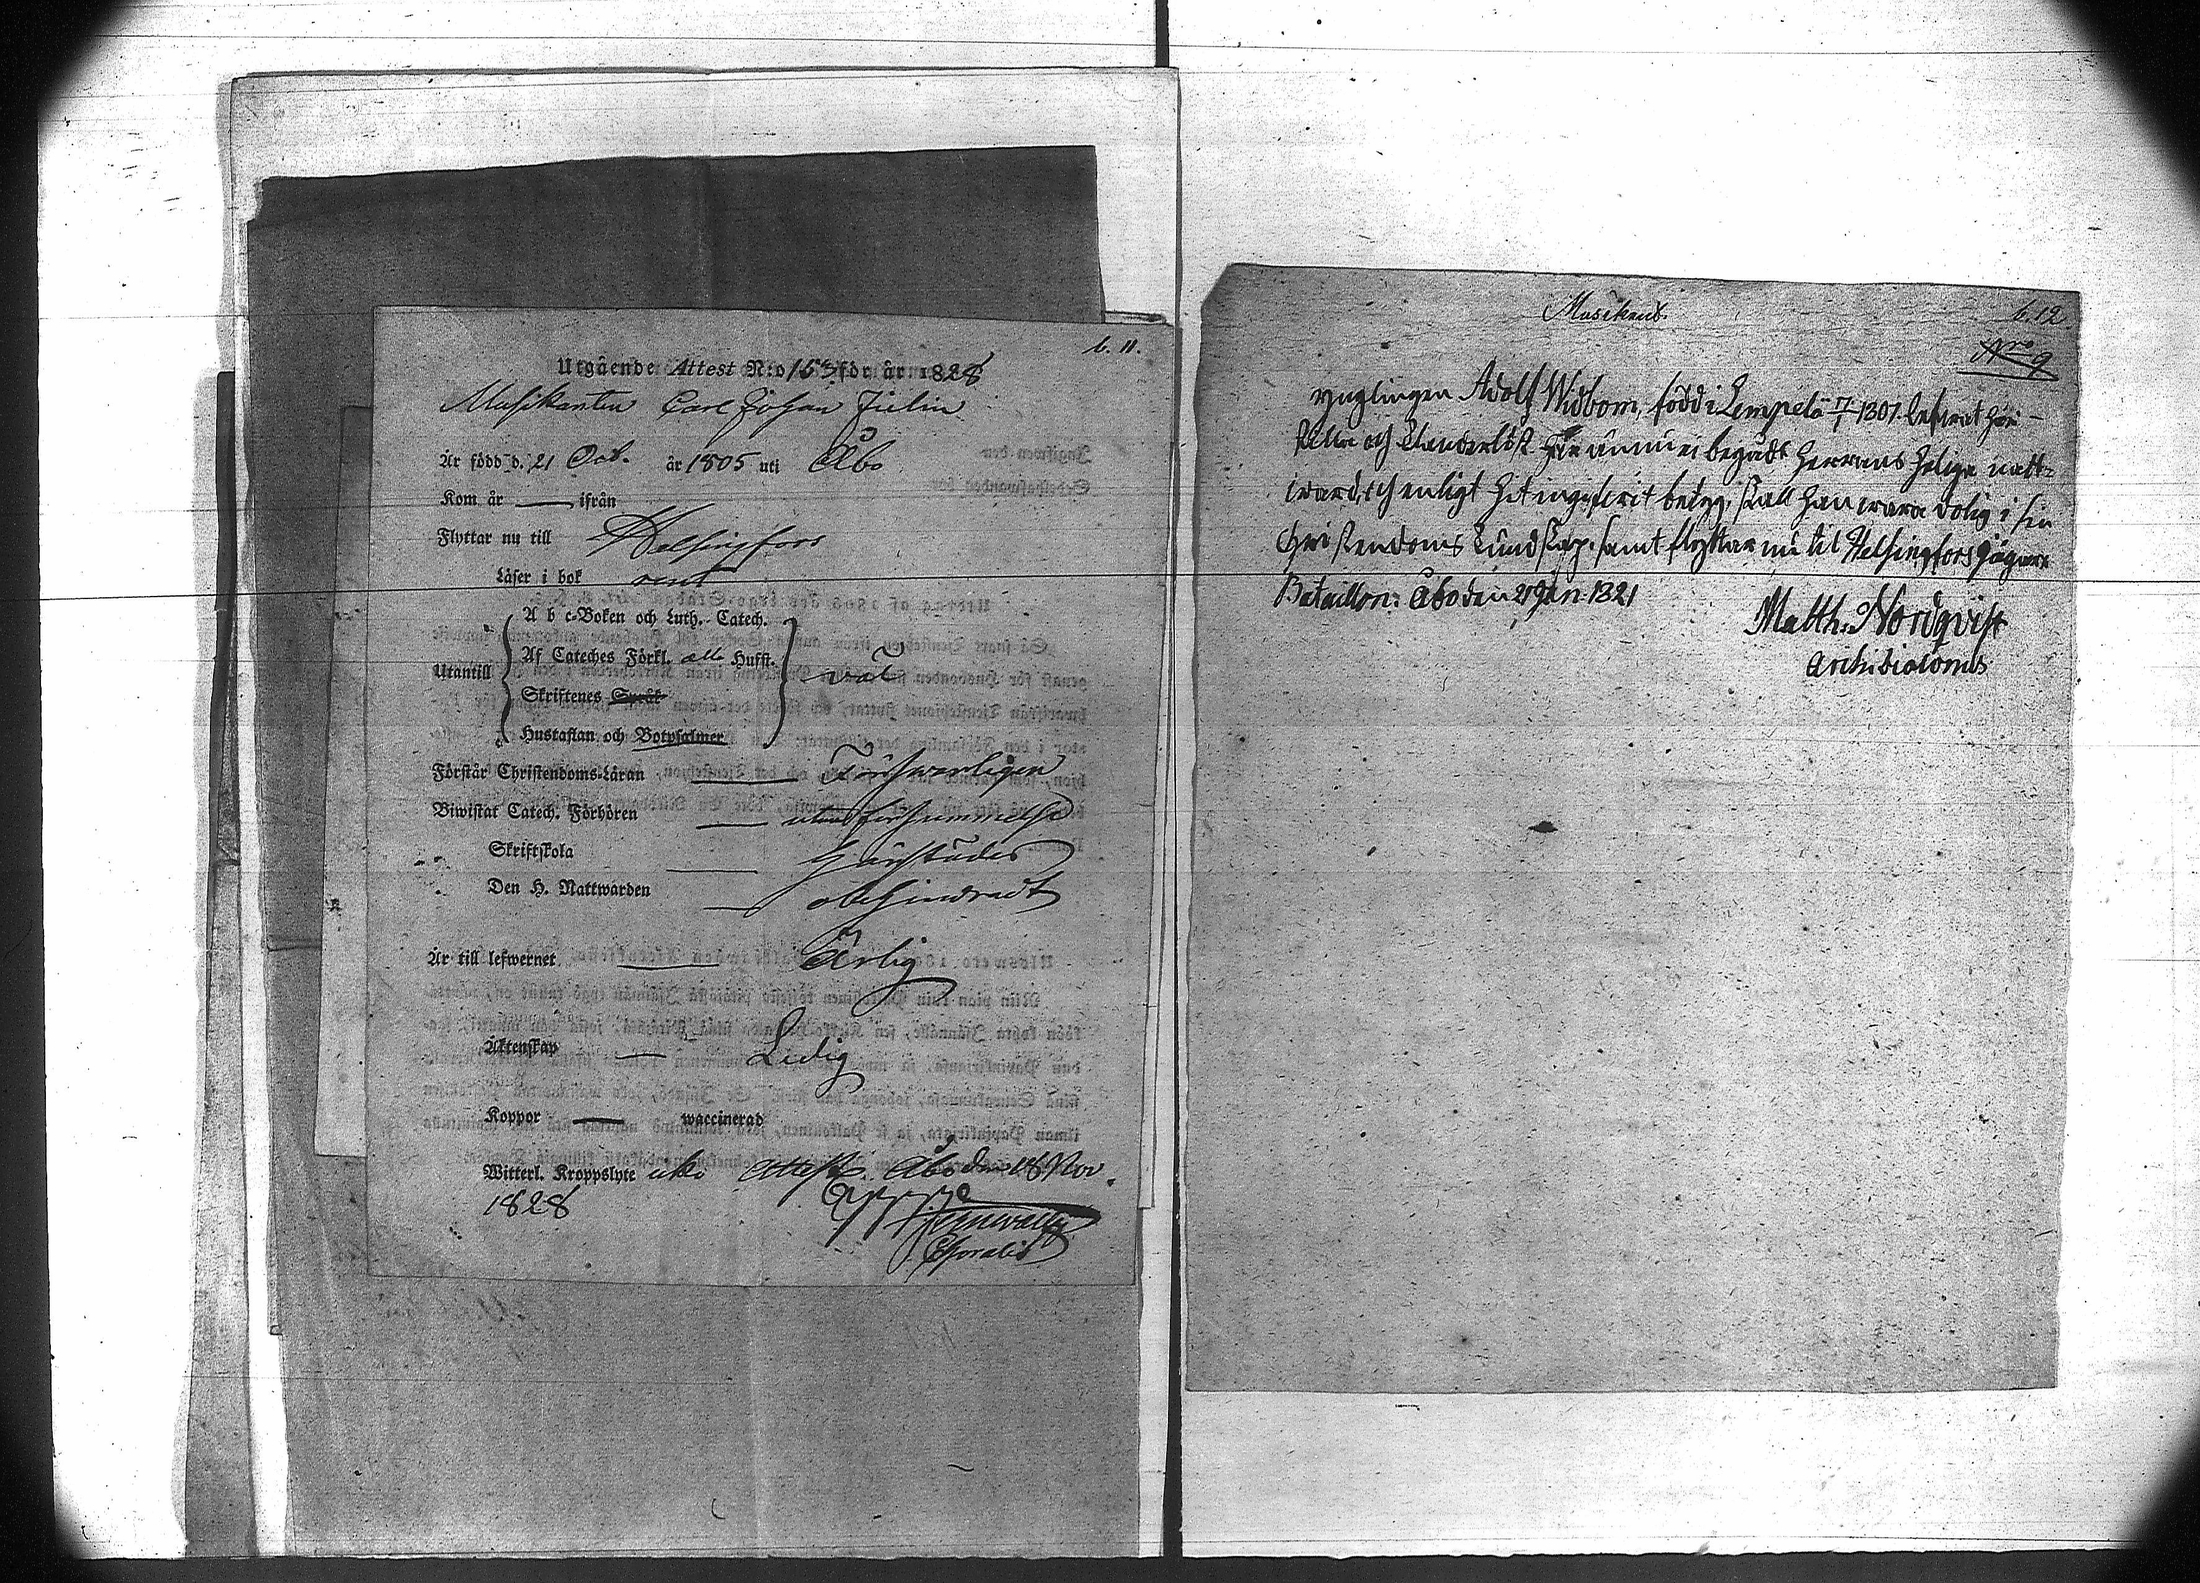 b. 11.
Utgående Attest N:o 153 för år 1828
Musikanten Carl Johan Zielin
Är född d. 21 Oct. år 1805 uti Åbo
Kom år — ifrån
Flyttar nu till Helsingfors
Läser i bok rent
Utantill
A b c-Boken och Luth. Catech.
Af Cateches Förkl. alla Hufst.
Skriftenes Språk
Hustaflan och Botpsalmer
väl
Förstår Christendoms-Läran — Försvarligen
Biwistat Catech. Förhören — utan försummelse
Skriftskola —
Den H. Nattwarden — obehindradt
Är till lefwernet — Ärlig
Äktenskap — Ledig
Koppor — waccinerad
Witterl. Kroppslyte icke Åbo den 18 Nov.
1828
Musikant.
b. 12.
Nro 9
Ynglingen Adolf Widbom, född i Lempelä 7/7 1801.
och Klanderlöst ännu ei begådt Herrans Helga natt-
ward, och enligt skall han wara dålig i sin
Christendoms Kundskap. samt flyttar nu til Helsingfors Jägare
Bataillon: Åbo den 21 Jan 1821
Matth. Nordqvist
Archidiaconus